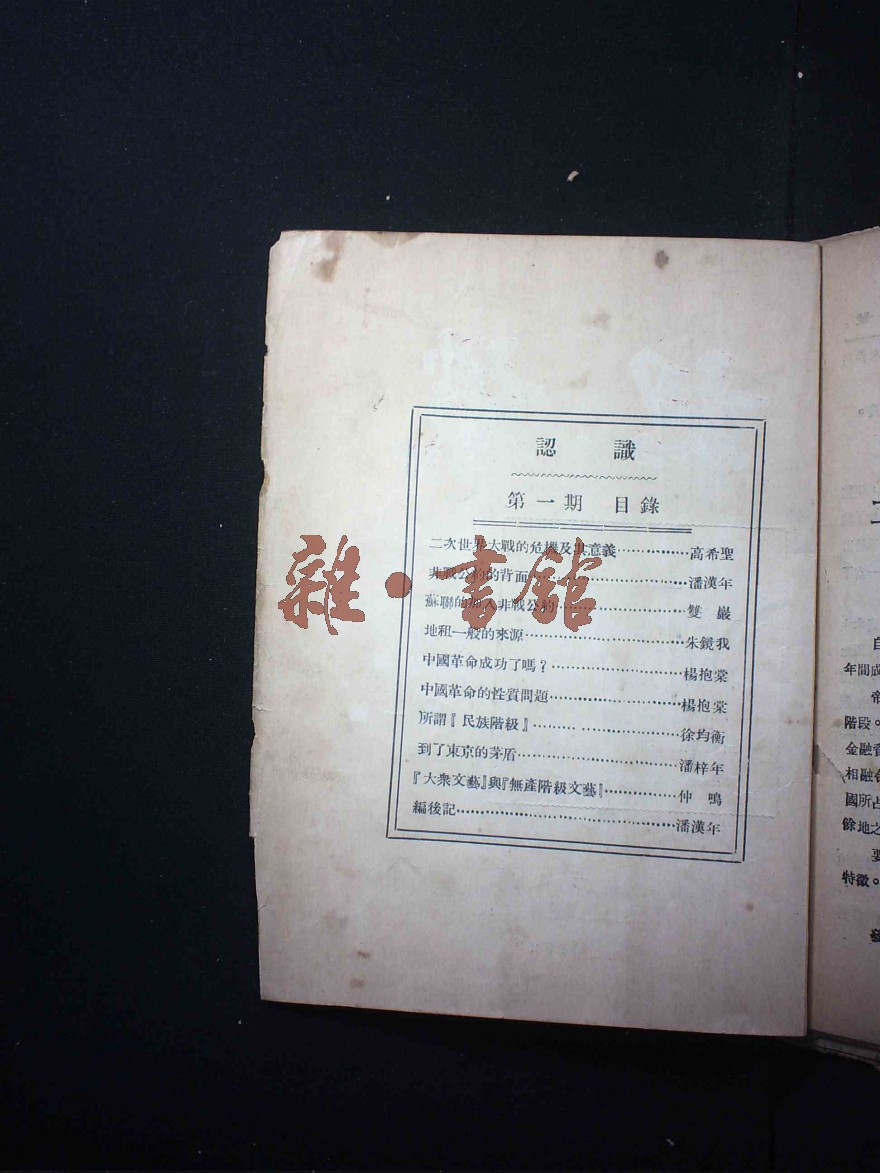 認識
第一期 目錄
二次世界大戰的危機及其意義……………高希聖
非戰公約的背面……………潘漢年
蘇聯的加入非戰公約……………雙巖
地租一般的來源……………朱鏡我
中國革命成功了嗎？……………楊抱棠
中國革命的性質問題……………楊抱棠
所謂『民族階級』……………徐均衡
到了東京的茅盾……………潘梓年
『大衆文藝』與『無產階級文藝』……………仲鳴
編後記……………潘漢年
雜·書館
自
年間成
帝
階段。
金融資
相融合
國所占
餘地之
要
特徵。